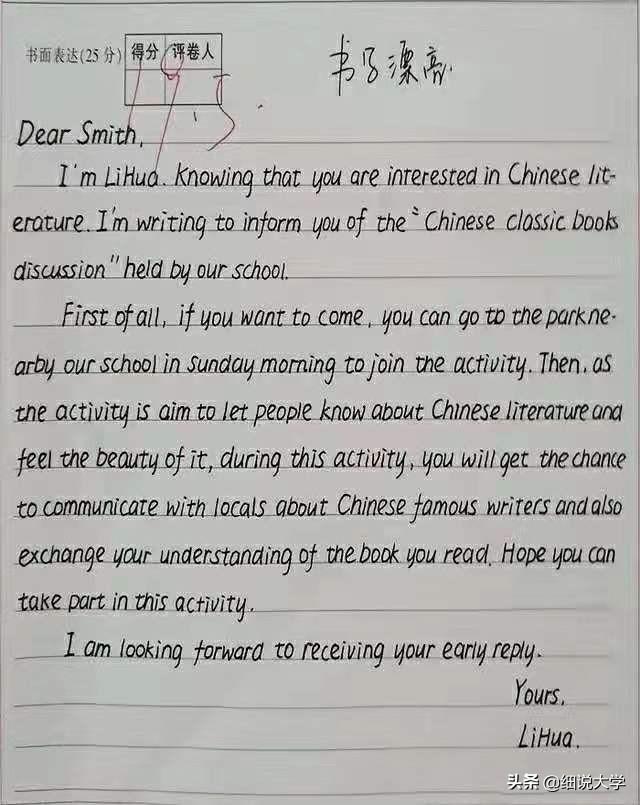 书面表达(25分) 得分 评卷人
书写漂亮.
Dear Smith,
I'm LiHua. Knowing that you are interested in Chinese lit-
erature. I'm writing to inform you of the "Chinese classic books
discussion" held by our school.
First of all, if you want to come, you can go to the park ne-
arby our school in Sunday morning to join the activity. Then, as
the activity is aim to let people know about Chinese literature and
feel the beauty of it, during this activity, you will get the chance
to communicate with locals about Chinese famous writers and also
exchange your understanding of the book you read. Hope you can
take part in this activity.
I am looking forward to receiving your early reply.
Yours,
LiHua.
头条 @细说大学